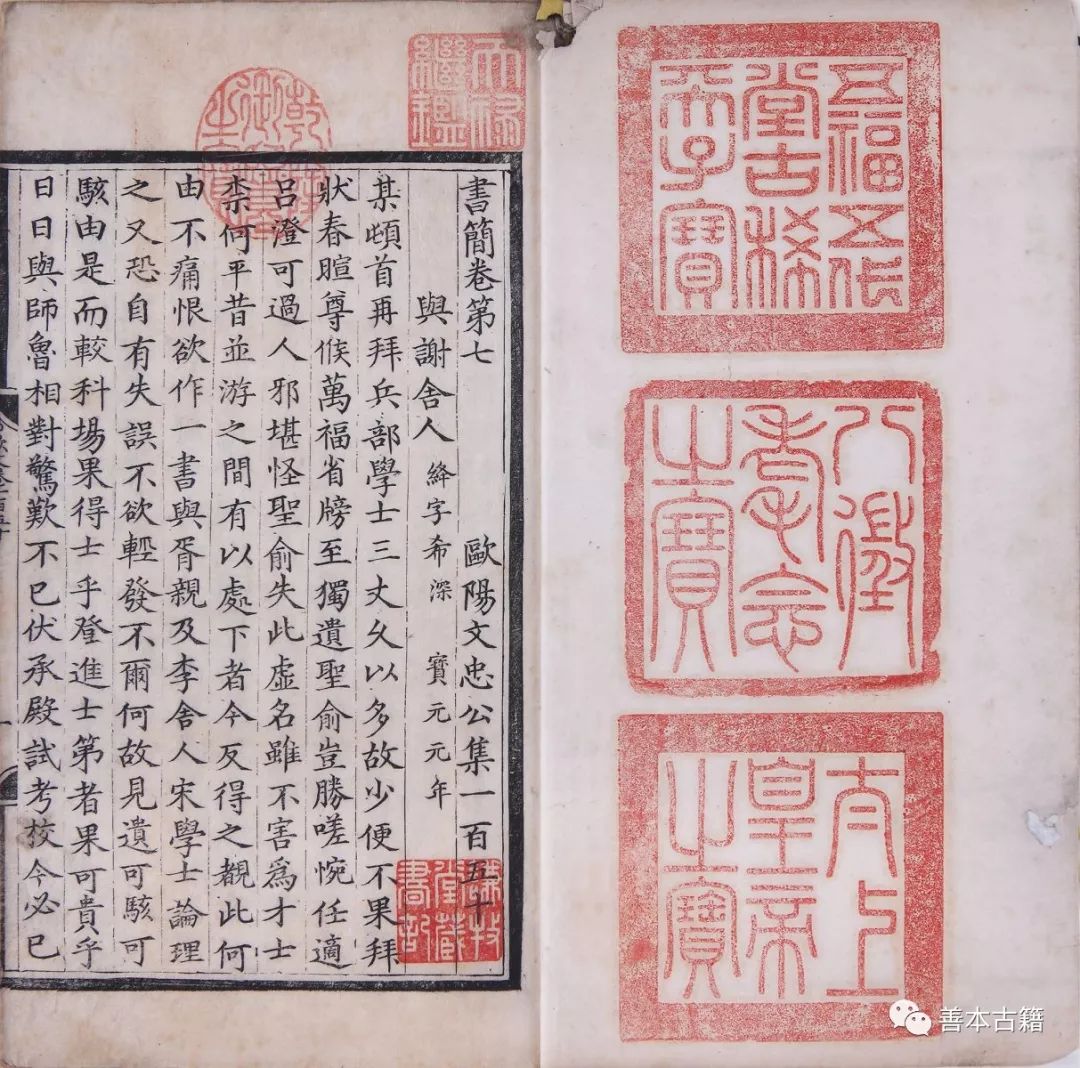 五福五代
堂古稀
天子寶
八徵
耄念
之寶
太上
皇帝
之寶
天祿
繼鑑
乾隆
御覽
之寶
書簡卷第七 歐陽文忠公集一百五十
與謝舍人 絳字希深 寶元元年
某頓首再拜兵部學士三丈久以多故少便不果拜
狀春暄尊候萬福省牓至獨遺聖俞豈勝嗟惋任適
呂澄可過人邪堪怪聖俞失此虛名雖不害爲才士
柰何平昔並游之間有以處下者今反得之覩此何
由不痛恨欲作一書與胥親及李舍人宋學士論理
之又恐自有失誤不欲輕發不爾何故見遺可駭可
駭由是而較科場果得士乎登進士第者果可貴乎
日日與師魯相對驚歎不已伏承殿試考校今必已
善本古籍